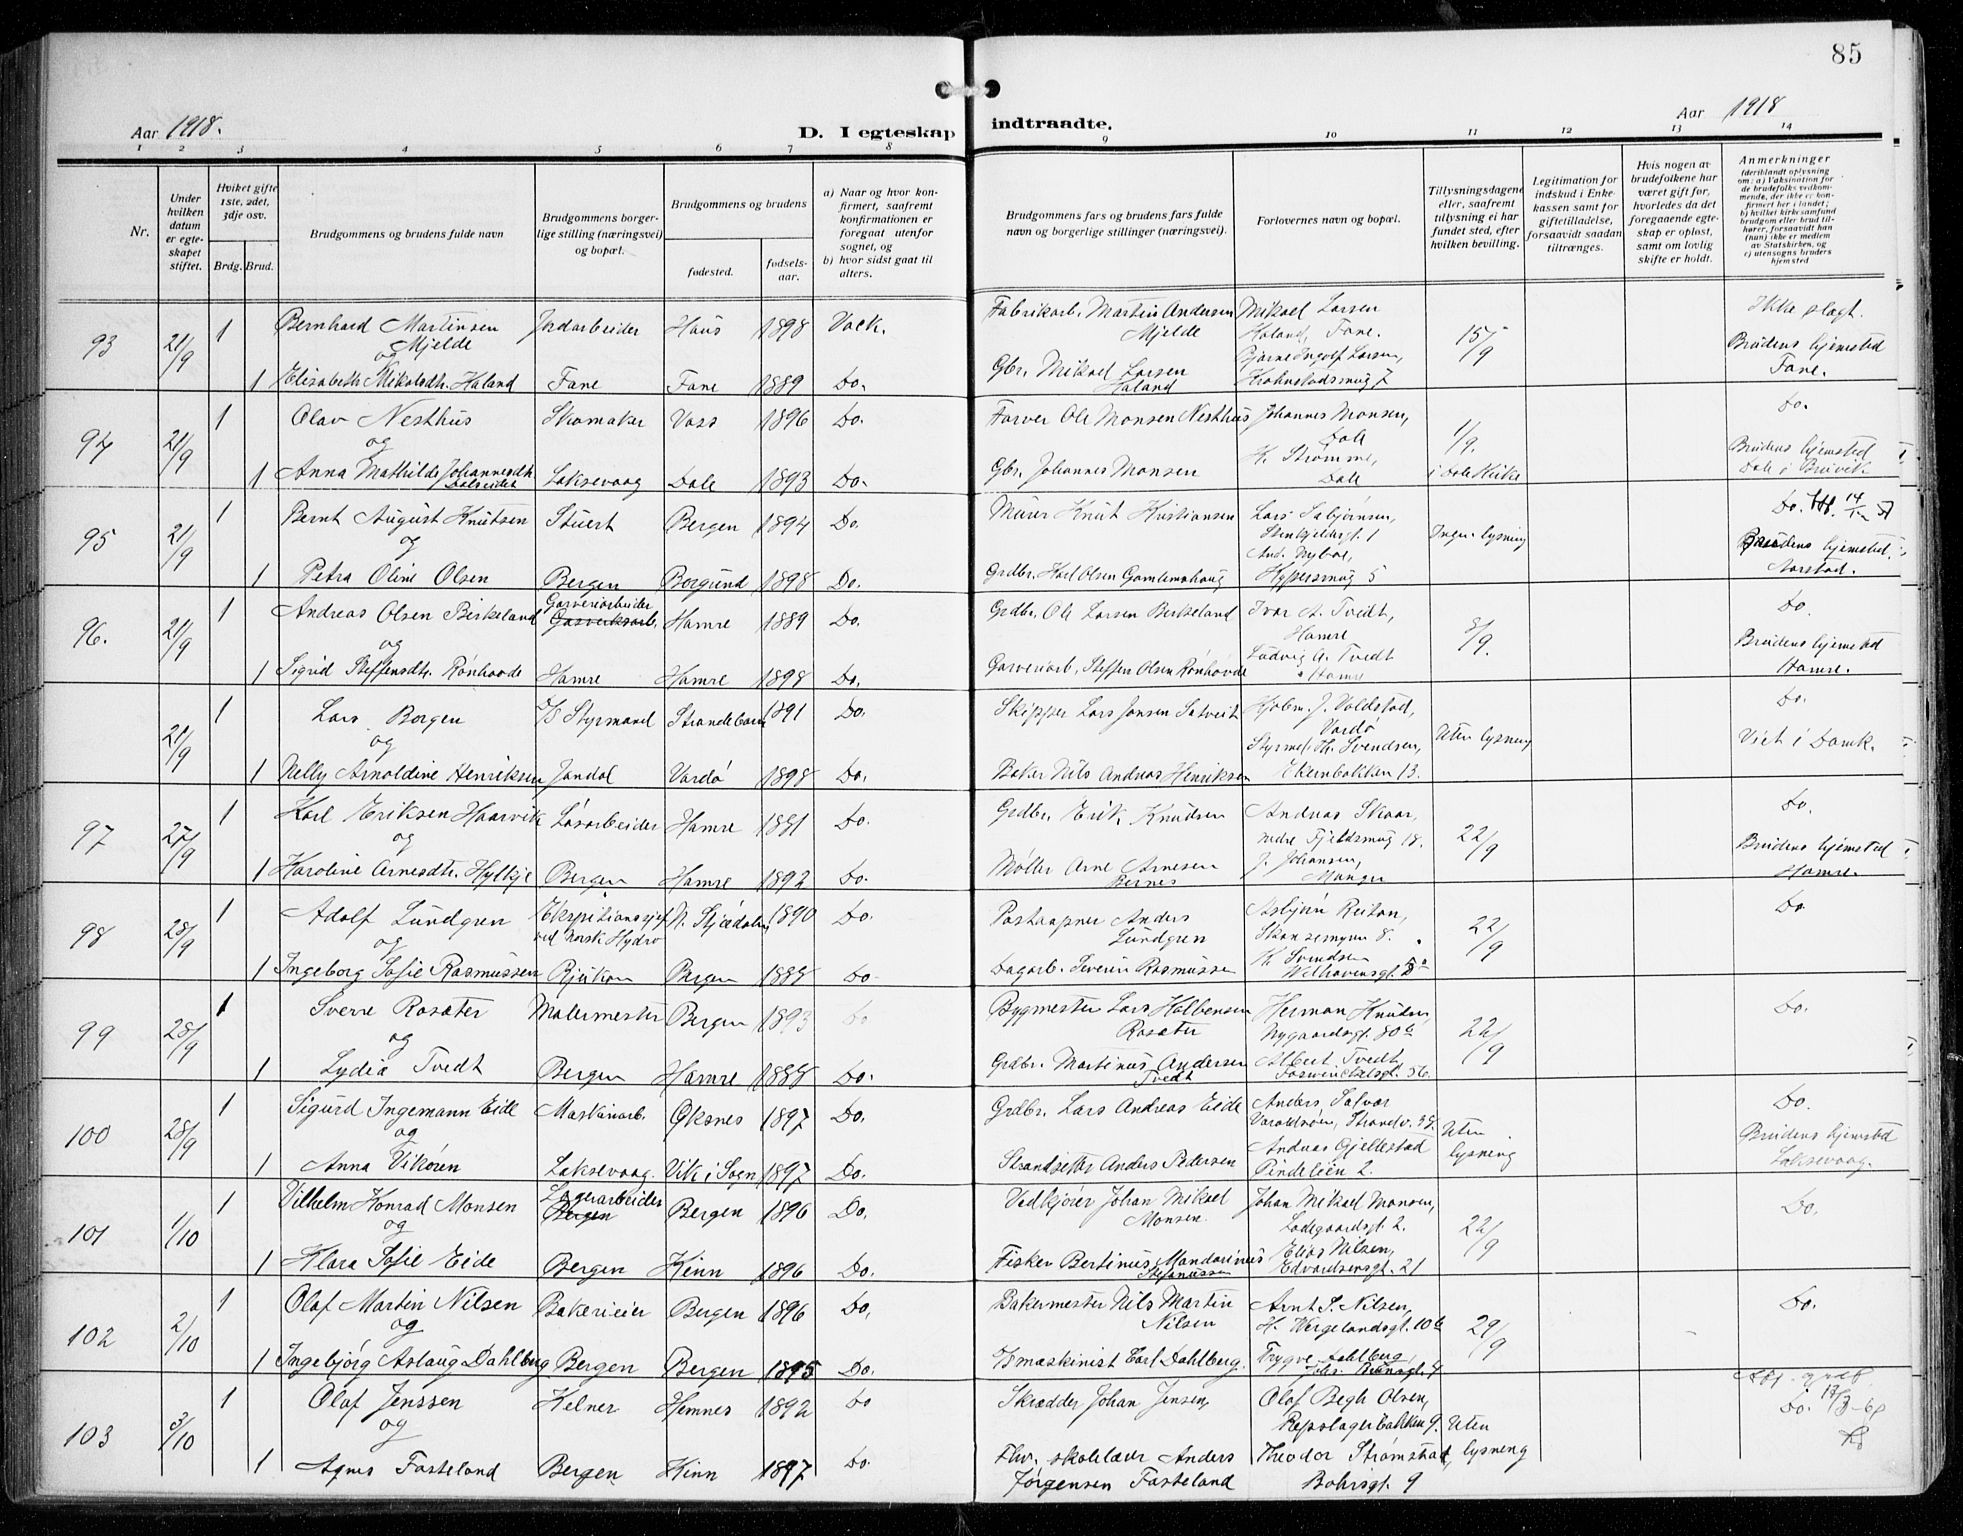 85
Aar 1918.
D. I egteskap indtraadte.
Aar 1918
1 2 3 4 5 6 7 8 9 10 11 12 13 14
Nr.
Under hvilken datum er egteskapet stiftet.
Hvilket gifte 1ste, 2det, 3dje osv.
Brdg. Brud.
Brudgommens og brudens fulde navn
Brudgommens borgerlige stilling (næringsvei) og bopæl.
Brudgommens og brudens
fødested.
fødselsaar.
a) Naar og hvor konfirmert, saafremt konfirmationen er foregaat utenfor sognet, og
b) hvor sidst gaat til alters.
Brudgommens fars og brudens fars fulde navn og borgerlige stillinger (næringsvei).
Forlovernes navn og bopæl.
Tillysningsdagene eller, saafremt tillysning ei har fundet sted, efter hvilken bevilling.
Legitimation for indskud i Enkekassen samt for giftetilladelse, forsaavidt saadan tiltrænges.
Hvis nogen av brudefolkene har været gift før, hvorledes da det foregaaende egteskap er opløst, samt om lovlig skifte er holdt.
Anmerkninger
(deriblandt oplysning om: a) Vaksination for de brudefolks vedkommende, der ikke er konfirmert her i landet; b) hvilket kirkesamfund brudgom eller brud tilhører, forsaavidt han (hun) ikke er medlem av Statskirken, og c) utensogns bruders hjemsted
93 21/9 1 Bernhard Martinsen Mjelde Jordarbeider Haus 1898 Vack. Fabrikarb. Martin Andersen Mjelde Mikael Larsen Haland, Fane. 15/9 Ikke plagt.
og
1 Elizabeth Mikalsdtr. Haland Fane Fane 1889 Do. Gbr. Mikael Larsen Haland Bjarne Ingolf Larsen, Krohnstadsmug 7 Brudens hjemsted Fane.
94 21/9 1 Olav Nesthus Skomaker Voss 1896 Do. Farver Ole Monsen Nesthus Johannes Monsen, Dale 1/9. Do.
og
1 Anna Mathilde Johannesdtr. Dalseidet Laksevaag Dale 1893 Do. Gbr. Johannes Monsen K. Strømme, Dale i Dale Kirke Brudens hjemsted Dale i Bruvik
95 21/9 1 Bernt August Knutsen Stuert Bergen 1894 Do. Murer Knut Kristiansen Lars Sabjørnsen, 1 Ingen lysning Do.
og
1 Petra Oline Olsen Bergen Borgund 1898 Do. Grdbr. Karl Olsen Gamlemshaug And. Nybøe, 5 Brudens hjemsted Aarstad.
96. 21/9 1 Andreas Olsen Birkeland Garveriarbeider Gasverksarb. Hamre 1889 Do. Grdbr. Ole Larsen Birkeland Ivar A. Tvedt, Hamre 8/9. Do.
og
1 Sigrid Steffensdtr. Rønhovde Hamre Hamre 1898 Do. Garveriarb. Steffen Olsen Rønhovde Ludvig A. Tvedt Hamre Brudens hjemsted Hamre.
21/9 1 Lars Borgen D/S Styrmand Strandebarm 1891 Do. Skipper Lars Jonsen Satveit Hjalm. J. Voldstad, Vardø Uten lysning Do.
og
1 Nelly Arnoldine Henriksen Jondal Vardø 1898 Do. Baker Nils Andreas Henriksen Styrm. Th. Svendsen, Ekernbakken 13. Viet i Domk.
97 27/9 1 Karl Eriksen Haarvik Løsarbeider Hamre 1881 Do. Grdbr. Erik Knudsen Andreas Skaar, nedre Fjeldsmug 18. 22/9 Do.
og
1 Karoline Arnesdtr. Hylkje Bergen Hamre 1892 Do. Møller Arne Arnesen Bernes J. Johansen, Manger Brudens hjemsted Hamre.
98 28/9 1 Adolf Lundgren Ekspeditionssjef ved Norsk Hydro N. Stjørdalen 1890 Do. Postaapner Anders Lundgren Asbjørn Reitan, Skansemyren 8. 22/9 Do
og
1 Ingeborg Sofie Rasmussen Rjukan Bergen 1888 Do. Dagarb. Severin Rasmussen K. Svendsen Welhavensgt.
99 28/9 1 Sverre Rosæter Malermester Bergen 1893 Do Bygmester Lars Halbensen Rosæter Herman Knutsen, Nygaardsgt. 80a 22/9 Do.
og
1 Lydia Tvedt Bergen Hamre 1888 Do. Grdbr. Martinus Andersen Tvedt Albert Tvedt, 56.
100 28/9 1 Sigurd Ingemann Eide Maskinarb. Øksnes 1897 Do. Grdbr. Lars Andreas Eide Anders Salvar Varaldsøen, Strandv. Uten lysning Do.
og
1 Anna Vikøren Laksevaag. Vik i Sogn 1897 Do. Strandsitter Anders Pedersen Andreas Gjellestad 2. Brudens hjemsted Laksevaag.
101 1/10 1 Vilhelm Konrad Monsen Lagerarbeider Bergen Bergen 1896 Do. Vedkjører Johan Mikael Monsen. Johan Mikael Monsen, Ladegaardsgt. 2. 22/9 Do.
og
1 Klara Sofie Eide Bergen Kinn 1896 Do. Fisker Bertinus Mandarinus Stefanussen Elias Nilsen, Edvardsensgt. 21
102 2/10 1 Olaf Martin Nilsen Bakerieier Bergen 1896 Do. Bakermester Nils Martin Nilsen Arnt S. Nilsen, H. Wergelandsgt. 10b 29/9 Do.
og
1 Ingebjørg Aslaug Dahlberg Bergen Bergen 1895 Do. D/S maskinist Carl Dahlberg. Trygve Dahlberg, Johs. Brunsgt. 4
103 3/10 1 Olaf Jenssen Kelner Hemnes 1892 Do Skrædder Johan Jensen, Olaf Begh Olsen, Repslagerbakken 9. Uten lysning Do.
og
1 Agnes Fasteland Bergen Kinn 1897 Do. Fhv. skolelærer Anders Jørgensen Fasteland Theodor Strømstad, Bohrsgt. 9